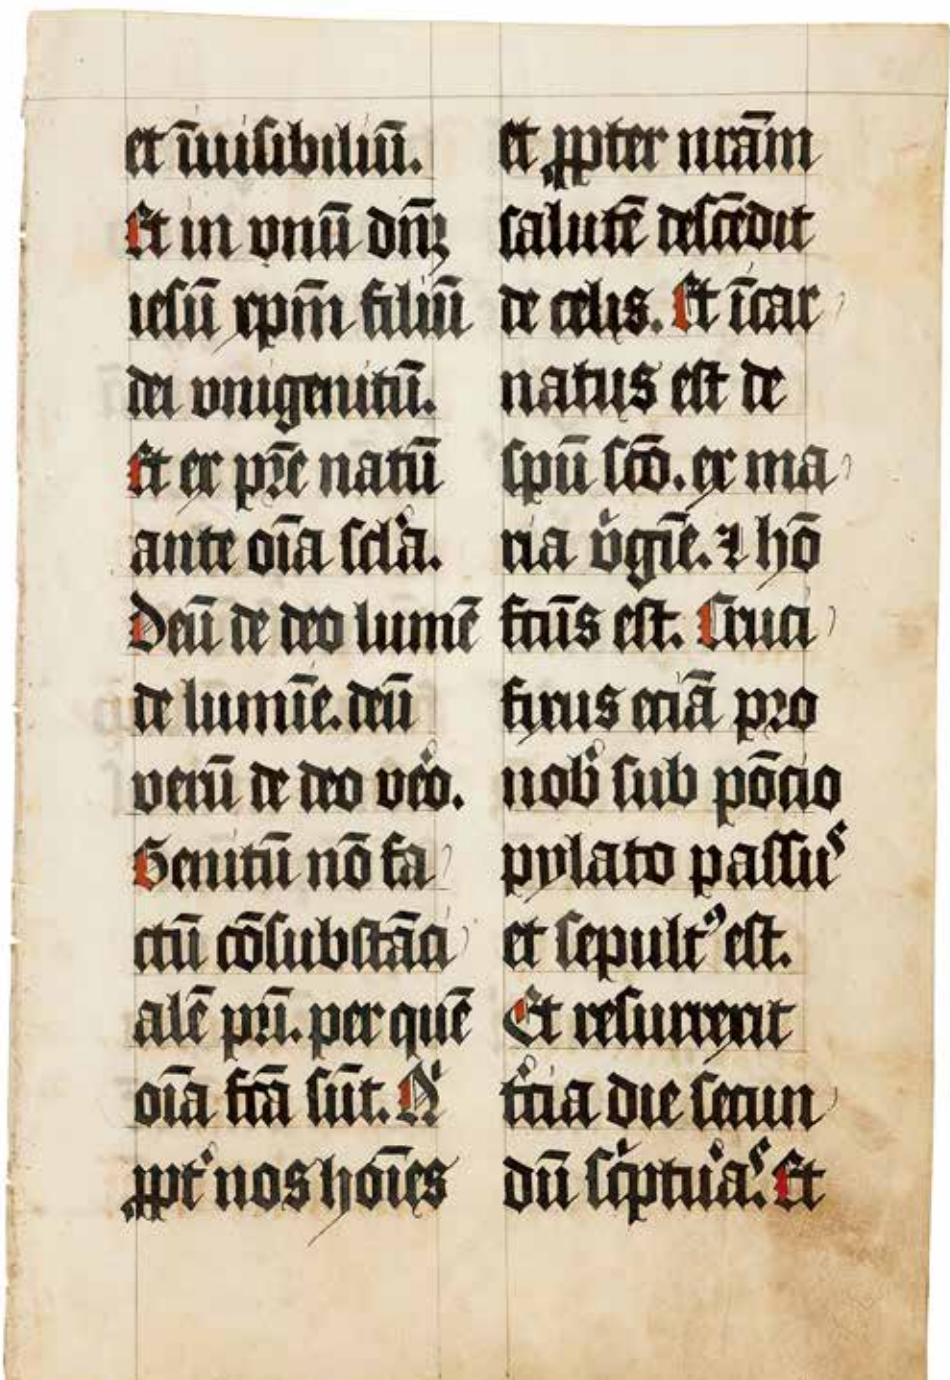 et īuisibiliū.
Et in vnū dn̄ꝫ
iesū xpm̄ filiū
dei vnigenitū.
Et ex pr̄e natū
ante oīa scl̓a.
Deū de deo lumē
de lumīe. deū
verū de deo ve̓o.
Genitū nō fa
ctū cōsubstāci
alē pr̄i. per quē
oīa fc̄a sūt. Q̓
ꝓpt̓ nos hoīes
et ꝓpter nr̄am
salutē descēdit
de celis. Et īcar
natus est de
spū sc̄o. ex ma
ria v̓gīe. ⁊ hō
fcūs est. Cruci
fixus eciā pro
nob̓ sub pōcio
pylato passuˢ
et sepultꝰ est.
Et resurrexit
t̓cia die secun
dū sc̓ptu̓aˢ. Et